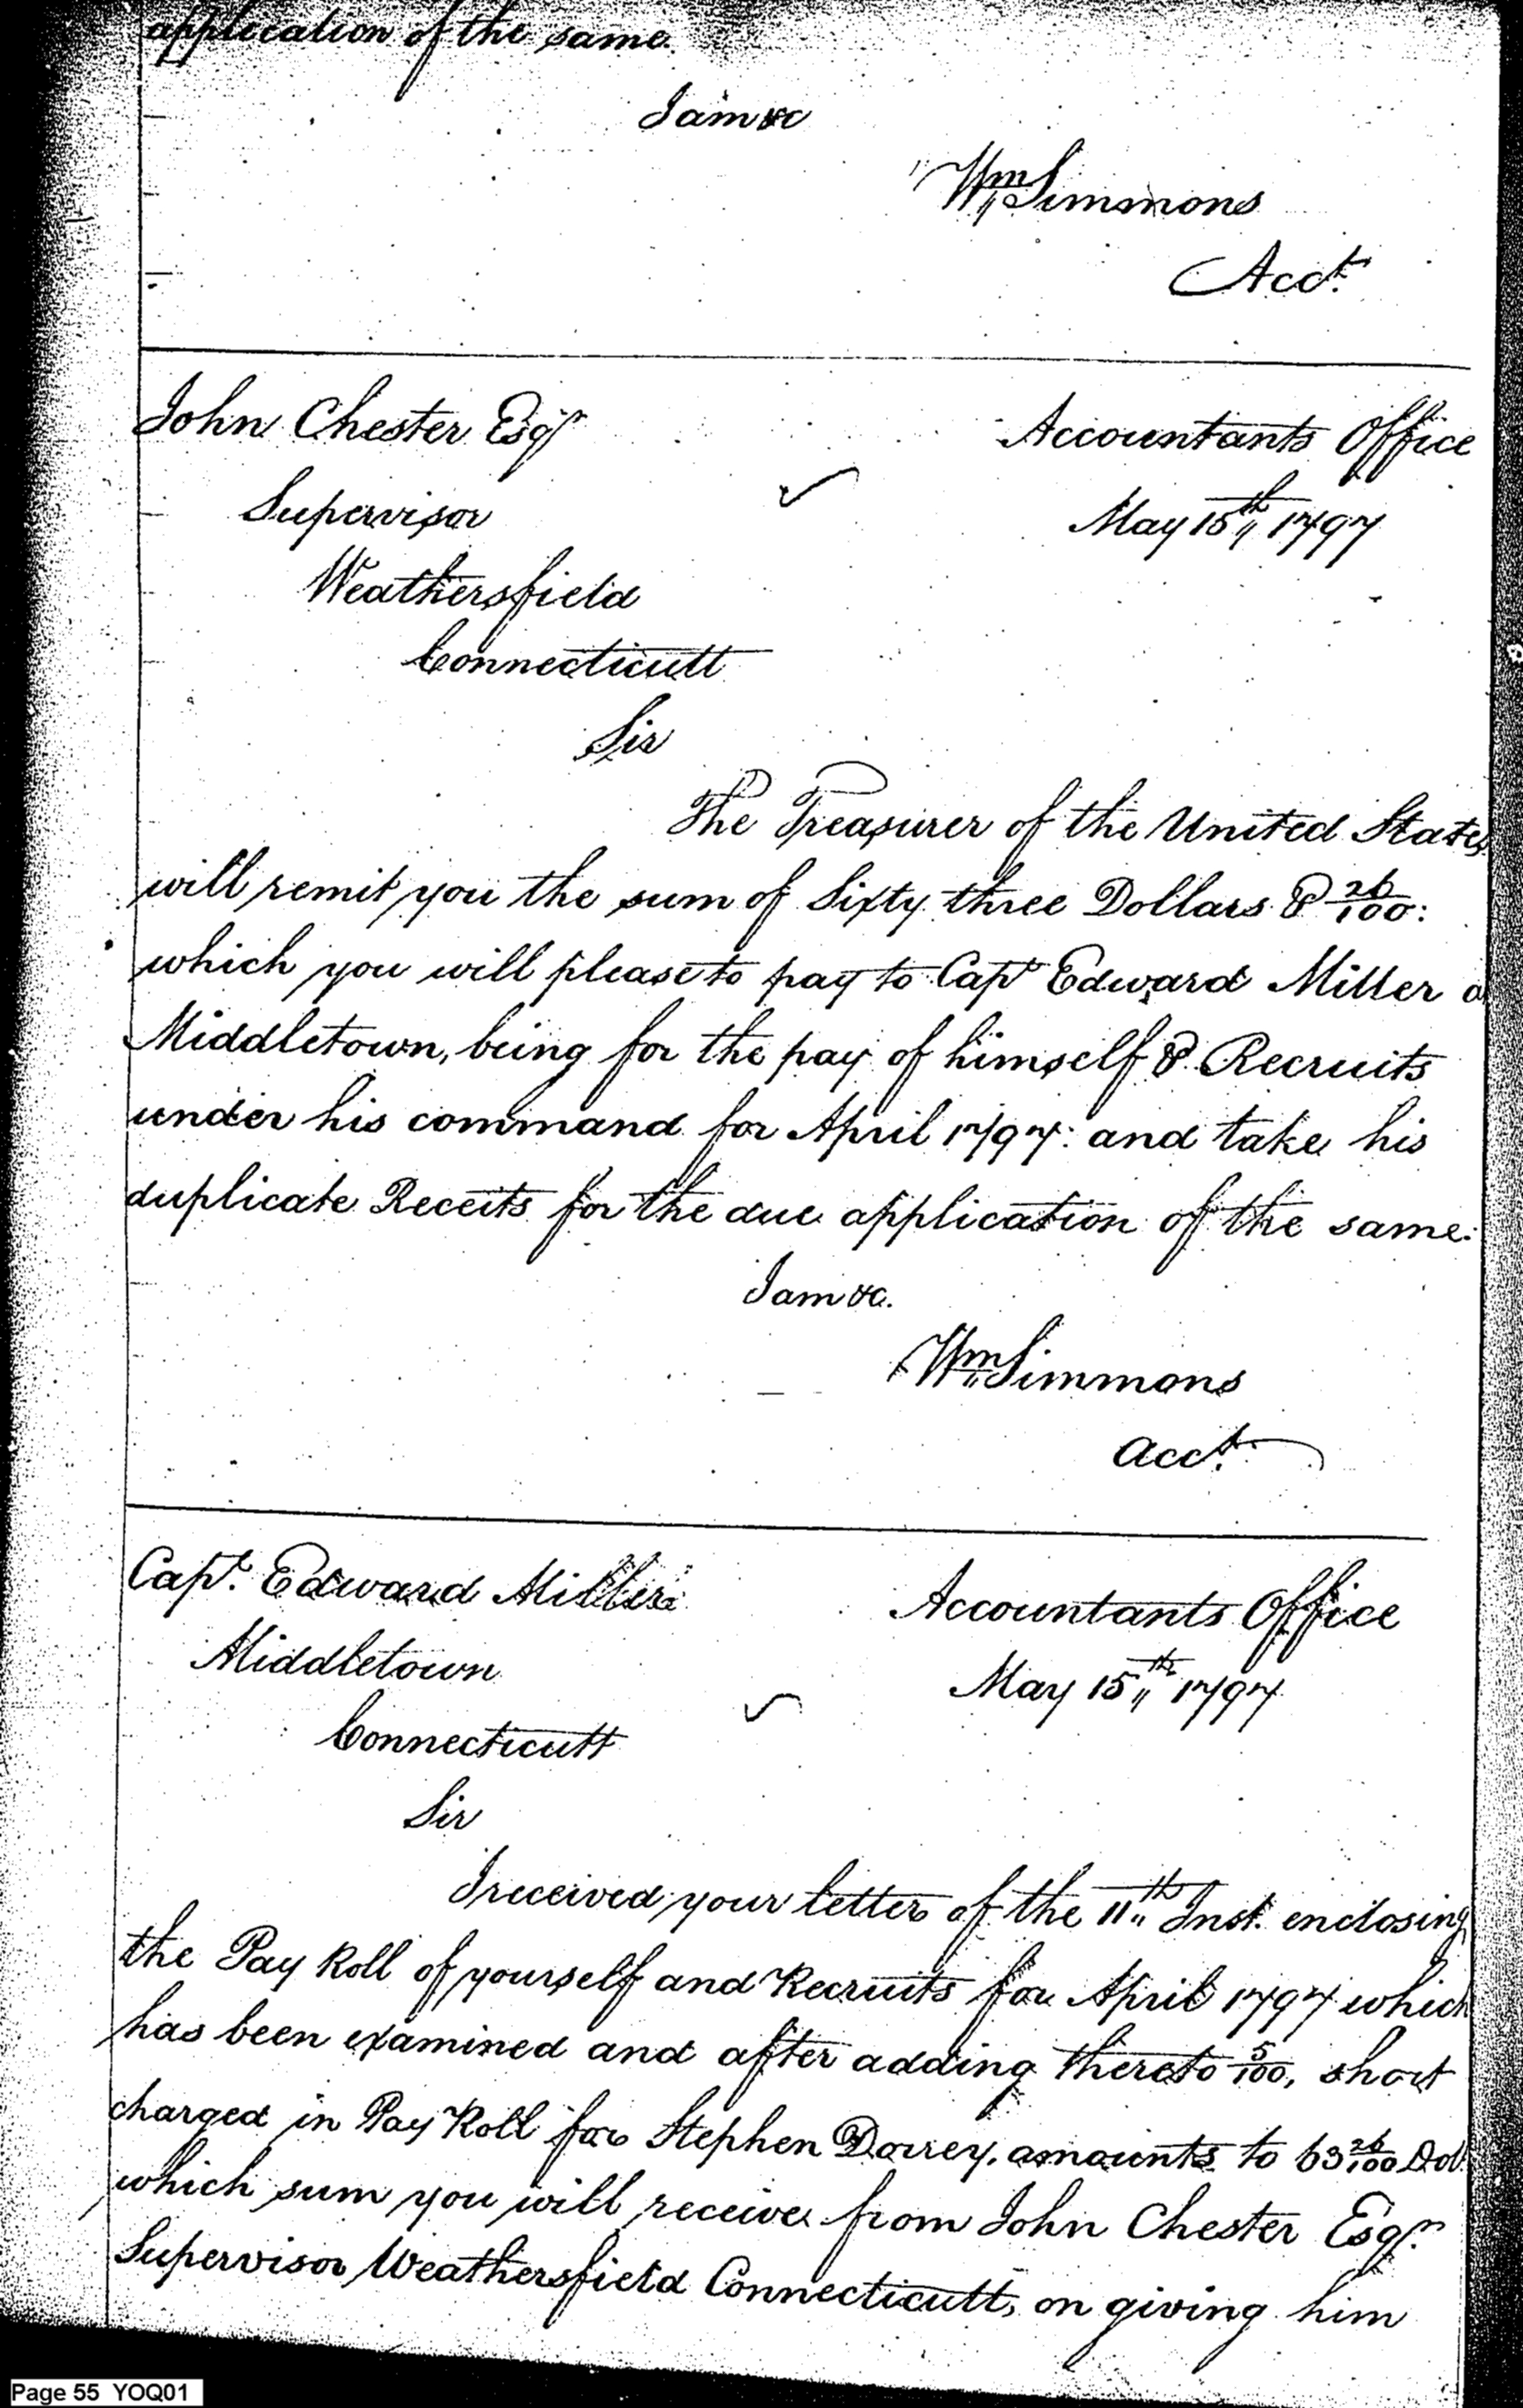 application of the same.
I am &c
Wm Simmons
Acct.
John Chester Esqr
Accountants Office
Supervisor
May 15th 1797
Weathersfield
Connecticutt
Sir
The Treasurer of the United States
will remit you the sum of Sixty three Dollars & 26/100:
which you will please to pay to Capt Edward Miller of
Middletown, being for the pay of himself & Recruits
under his command for April 1797: and take his
duplicate Receits for the due application of the same:
I am &c.
Wm Simmons
Acct.
Capt. Edward Miller
Accountants Office
Middletown
May 15th 1797
Connecticutt
Sir
I received your letter of the 11th Inst. enclosing
the Pay Roll of yourself and Recruits for April 1797 which
has been examined and after adding thereto 5/100, short
charged in Pay Roll for Stephen Dorrey, amounts to 63 26/100 Dol.
which sum you will receive from John Chester Esqr.
Supervisor Weathersfield Connecticutt, on giving him
Page 55 YOQ01